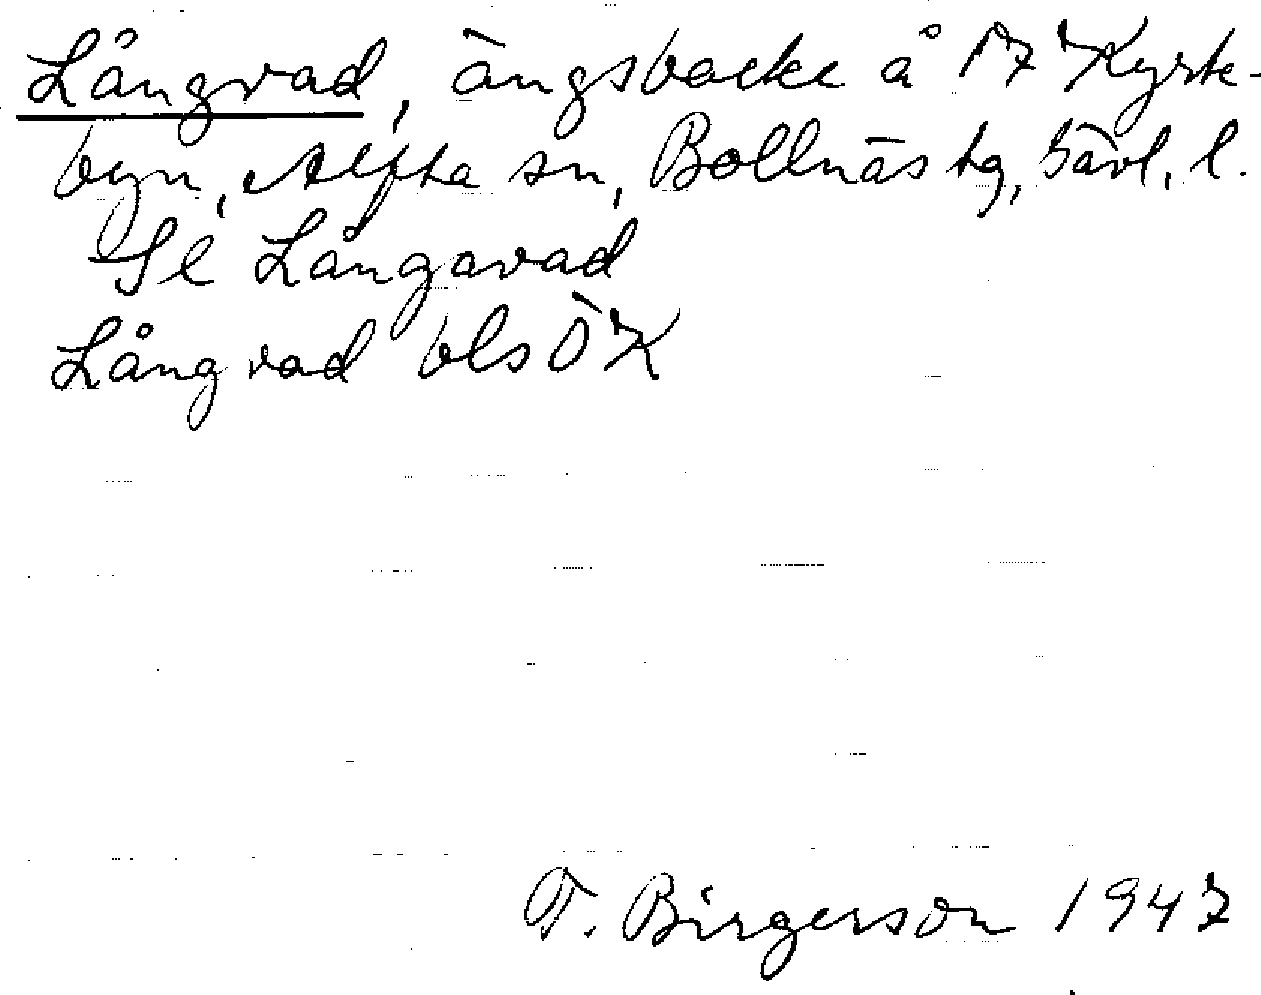 Långvad, ängsbacke å 17 Kyrk-
byn, Alfta sn, Bollnäs tg, Gävl. l.
Se Långavad
Långvad bls ÖK
T. Birgerson 1947